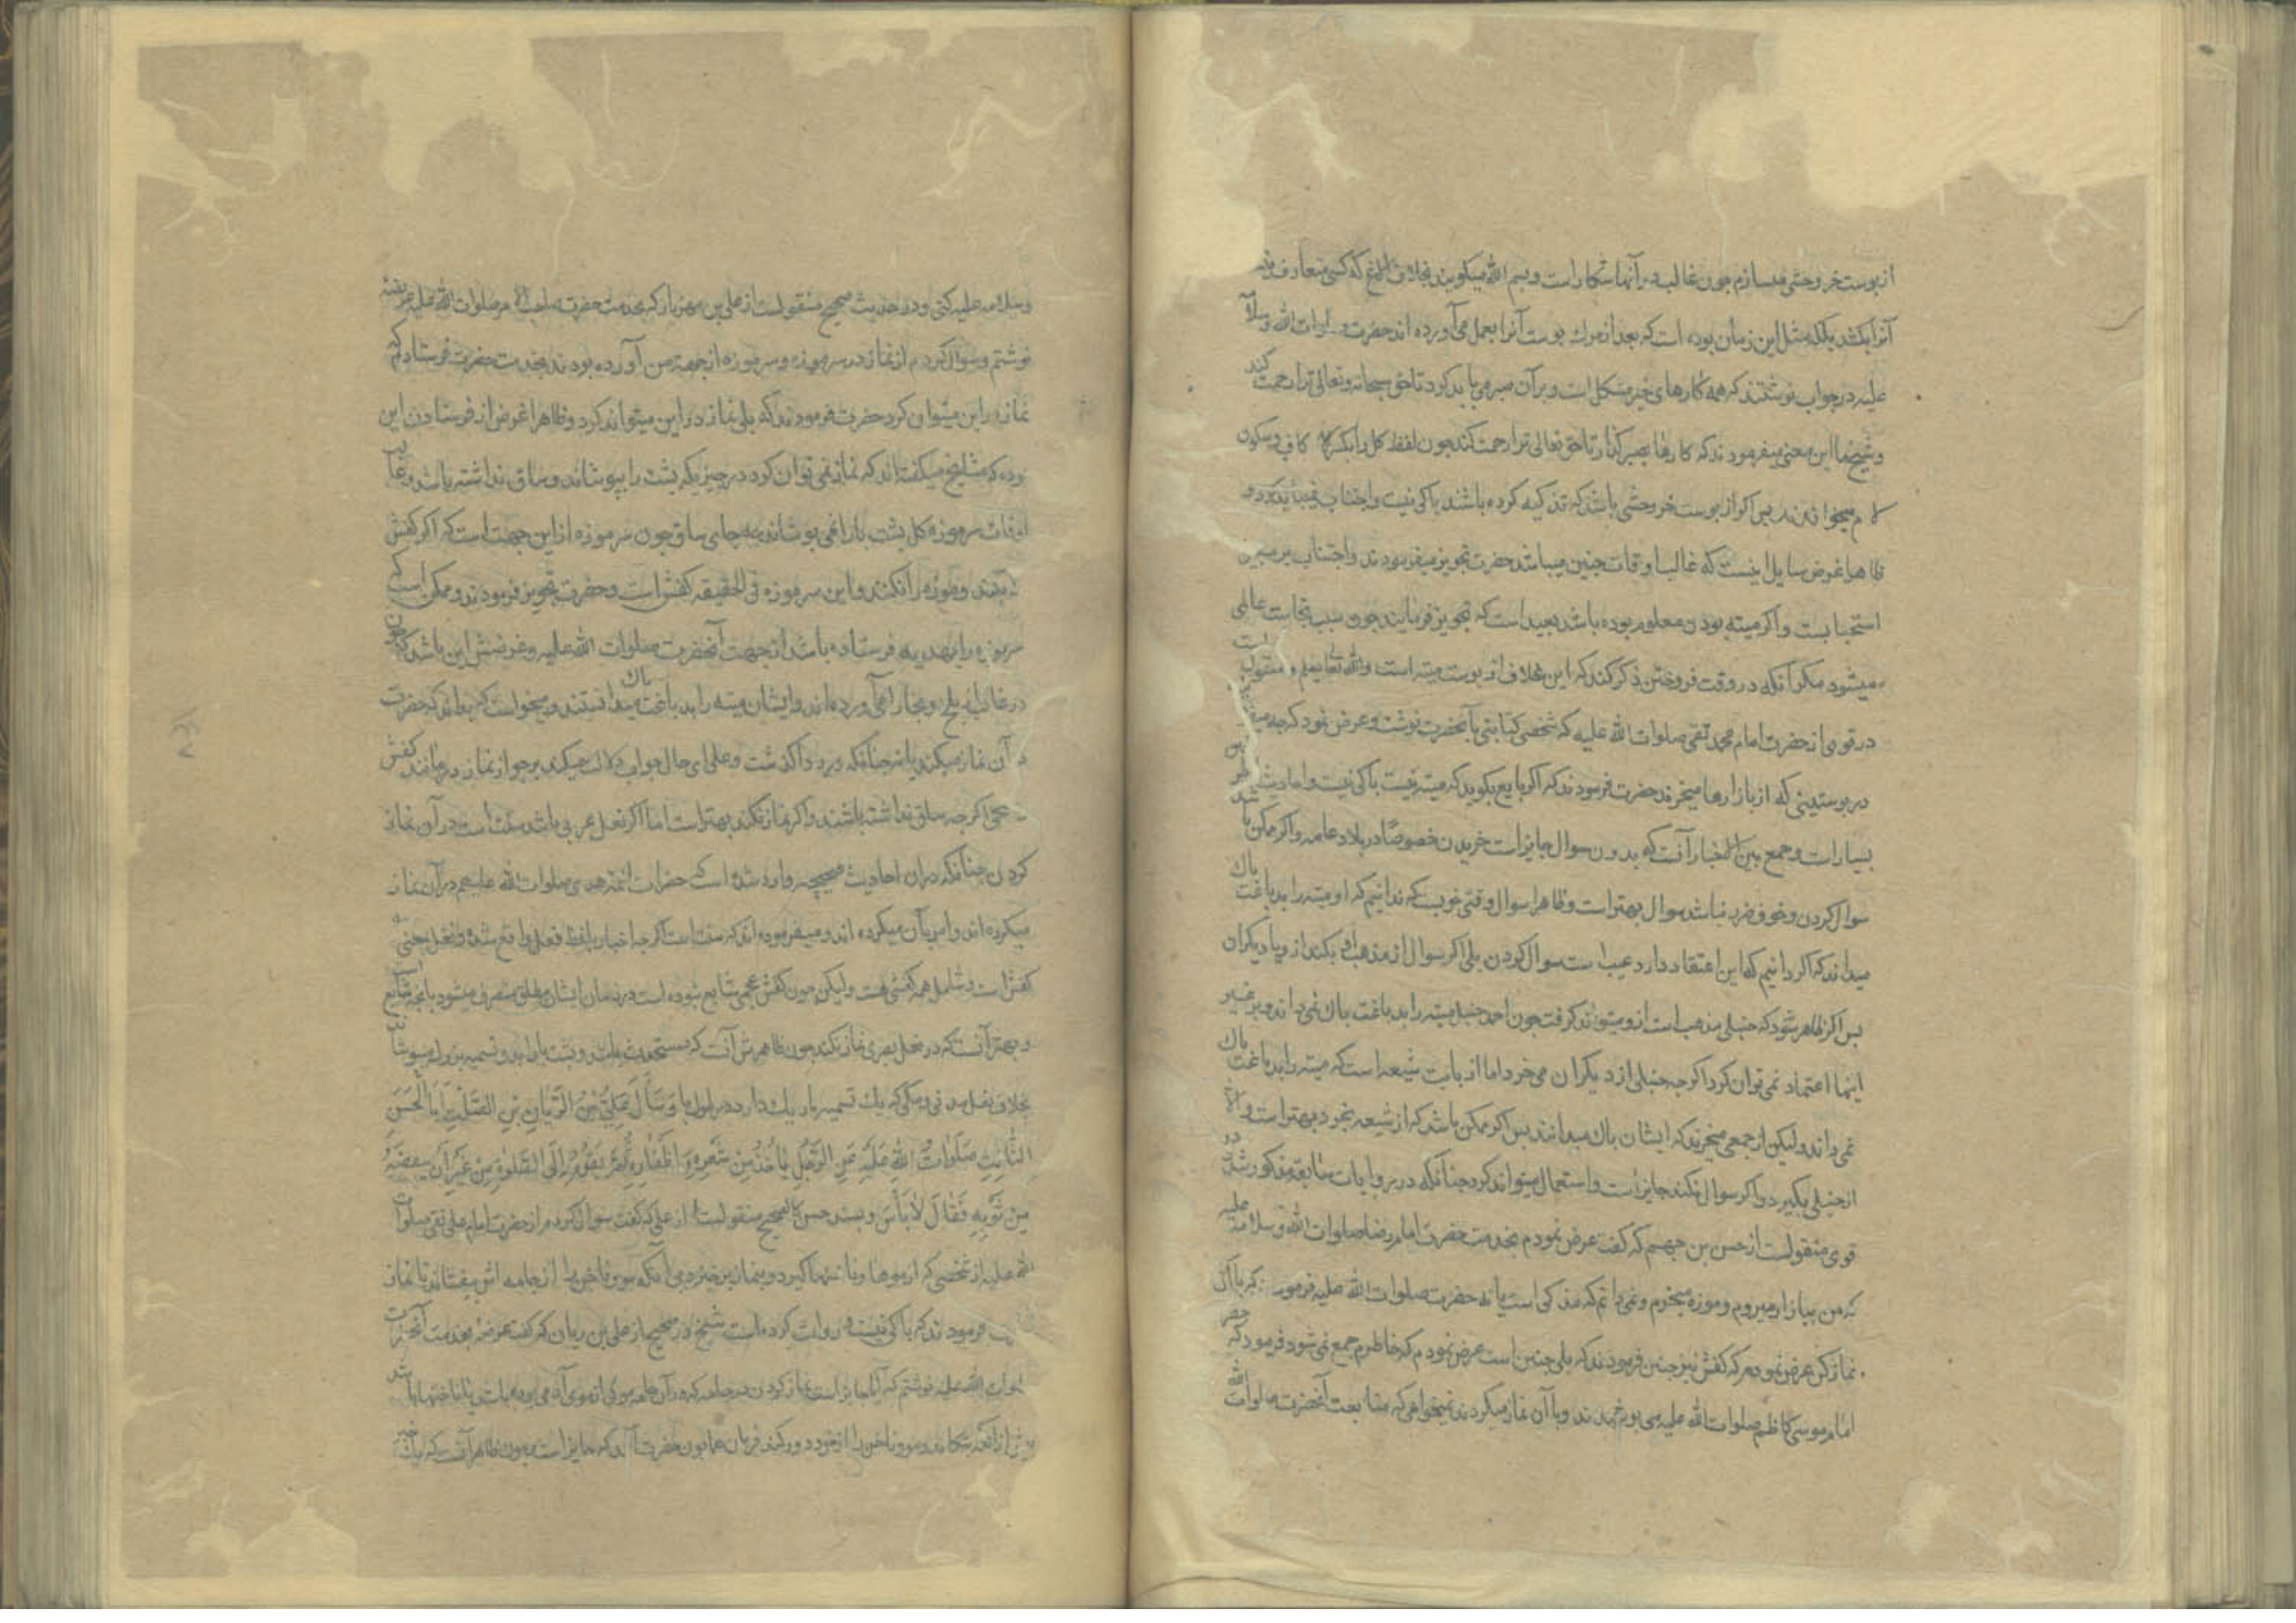 از پوست خر وحشی میسازم چون غالب در آنها شکار است و بسم الله میکویند بخلاف که کسی متعارف
آنرا بکشد بلکه مثل این زمان بوده است که بعد از مردن پوست آنرا بعمل می آورده اند حضرت صلوات الله و سلامه
علیه در جواب نوشتند که همه کارهای خیر مشکل است و بر آن صبر می باید کرد تا حق سبحانه و تعالی ترا رحمت کند
و شیخ ما این معنی میفرمودند که کارها بصبر گذار تا حق تعالی ترا رحمت کند چون لفظ کل را بکسر کاف و سکون
لام میخواندند پس اکر از پوست خر وحشی باشد که تذکیه کرده باشند باکی نیست و اجتناب نمیباید کرد و
ظاهرا غرض سایل اینست که غالب اوقات چنین میباشد حضرت تجویز میفرمودند و اجتناب بر سبیل
استحبابست و اکر میته بودن معلوم بوده باشد بعید است که تجویز فرمایند چون سبب نجاست عالمی
میشود مکر آنکه در وقت فروختن ذکر کند که این غلاف از پوست میته است والله تعالی یعلم و منقولست
در قوی از حضرت امام محمد تقی صلوات الله علیه که شخصی کتابتی بآنحضرت نوشت و عرض نمود که چه میفرمایند
در پوستینی که از بازارها میخرند حضرت فرمودند که اکر بایع بکوید که میته نیست باکی نیست و احادیث
بسیارست و جمع بین الاخبار آنست که بدون سوال جایز است خریدن خصوصا در بلاد عامه و اکر ممکن باشد
سوال کردن و خوف ضرر نباشد سوال بهتر است و ظاهرا سوال وقتی خوبست که ندانیم که او میته را بدباغت پاک
میداند که اکر دانیم که این اعتقاد دارد عبث است سوال کردن بلی اکر سوال از مذهب او بکند از و یا دیکران
پس اکر ظاهر شود که حنبلی مذهب است از و میتواند کرفت چون احمد حنبل میته را بدباغت پاک نمی داند و بر غیر
اینها اعتماد نمی توان کرد اکرچه حنبلی از دیکران می خرد اما از بابت شیعه است که میته را بدباغت پاک
نمی داند ولیکن از جمعی میخرند که ایشان پاک میدانند پس اکر ممکن باشد که از شیعه بخرد بهتر است و الا
از حنبلی بکیرد و اکر سوال نکند جایز است و استعمال میتواند کرد چنانکه در روایات سابقه مذکور شد و در
قوی منقولست از حسن بن جهم که کفت عرض نمودم بخدمت حضرت امام رضا صلوات الله و سلامه علیه
که من ببازار میروم و موزه میخرم و نمی دانم که مذکی است یا نه حضرت صلوات الله علیه فرمودند که با آن
نماز کن عرض نمودم که کفش نیز چنین فرمودند که بلی چنین است عرض نمودم که خاطرم جمع نمی شود فرمود که حضرت
امام موسی کاظم صلوات الله علیه می پوشیدند و با آن نماز میکردند نمیخواهی که متابعت آنحضرت صلوات الله
وسلامه علیه کنی و در حدیث صحیح منقولست از علی بن مهزیار که بخدمت حضرت صلوات الله علیه عریضه
نوشتم و سوال کردم از نماز در سرموزه و سرموزه از جهة من آورده بودند بخدمت حضرت فرستادم که
نماز در این میتوان کرد حضرت فرمودند که بلی نماز در این میتواند کرد و ظاهرا غرض از فرستادن این
بوده که مشایخ میکفته اند که نماز نمی توان کرد در چیزیکه پشت پا را بپوشاند و ساق نداشته باشد و غالب
اوقات سرموزه کل پشت پا را نمی پوشاند چون سرموزه از این جهت است که اکر کفش
بکنند و موزه را نکنند و این سرموزه فی الحقیقه کفش است و حضرت تجویز فرمودند و ممکن است که
سرموزه را بهدیه فرستاده باشد از جهت آنحضرت صلوات الله علیه و غرضش این باشد که چون
در غالب از بلخ و بخارا می آورده اند و ایشان میته را بدباغت پاک میدانستند و میخواست که بداند که حضرت
در آن نماز میکنند یا نه چنانکه در رد کذشت و علی ای حال جواب دلالت میکند بر جواز نماز در مانند کفش
عجمی اکرچه ساق نداشته باشند و اکر نماز نکند بهتر است اما اکر نعل عربی باشد سنت است در آن نماز
کردن چنانکه در آن احادیث صحیحه وارد شده است که حضرات ائمه هدی صلوات الله علیهم در آن نماز
میکرده اند و امر بآن میکرده اند و میفرموده اند که سنت است اکرچه اخبار بلفظ نعل واقع شده و نعل بمعنی
کفش است و شامل همه کفشی هست ولیکن چون کفش عجمی شایع نبوده است در زمان ایشان مطلق منصرف میشود بآنچه شایع
و بهتر آنست که در نعل بصری نماز نکند چون ظاهرش آنست که پشت پا را بدو تسمه بزرک میپوشاند
بخلاف نعل مدنی و مکی که یک تسمه باریک دارد در طول پا وَسَأَلَ عَلِیُّ بْنُ الرَّیَّانِ بْنِ الصَّلْتِ أَبَا الْحَسَنِ
الثَّالِثَ صَلَوَاتُ اللهِ عَلَیْهِ عَنِ الرَّجُلِ یَأْخُذُ مِنْ شَعْرِهِ وَ أَظْفَارِهِ ثُمَّ یَقُومُ إِلَی الصَّلَوةِ مِنْ غَیْرِ أَنْ یَنْفُضَهُ
مِنْ ثَوْبِهِ فَقَالَ لاَ بَأْسَ و بسند حسن کالصحیح منقولست از علی که کفت سوال کردم از حضرت امام علی نقی صلوات
الله علیه از شخصی که از موها و ناخنها کیرد و بنماز برخیزد بی آنکه مو و ناخن را از جامه اش بیفشاند تا نماز
فرمودند که باکی نیست و روایت کرده است شیخ در صحیح از علی بن ریان که کفت عریضه بخدمت آنحضرت
صلوات الله علیه نوشتم که آیا جایز است نماز کردن در جامه که در آن جامه موی از موی آدمی بوده باشد یا ناخنها باشد
پیش از آنکه بتکاند و مو و ناخن را از خود دور کند فرمان همایون حضرت آمد که جایز است چون ظاهر آنست که یک